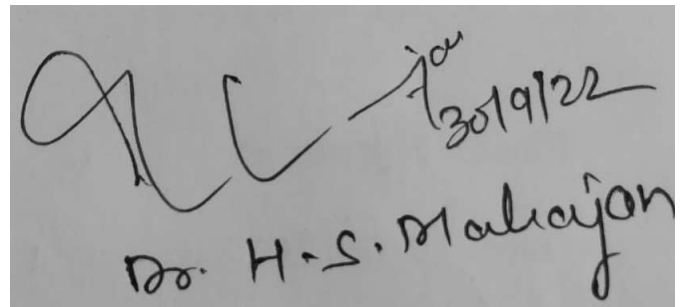 30/9/22
Dr. H.S. Mahajan